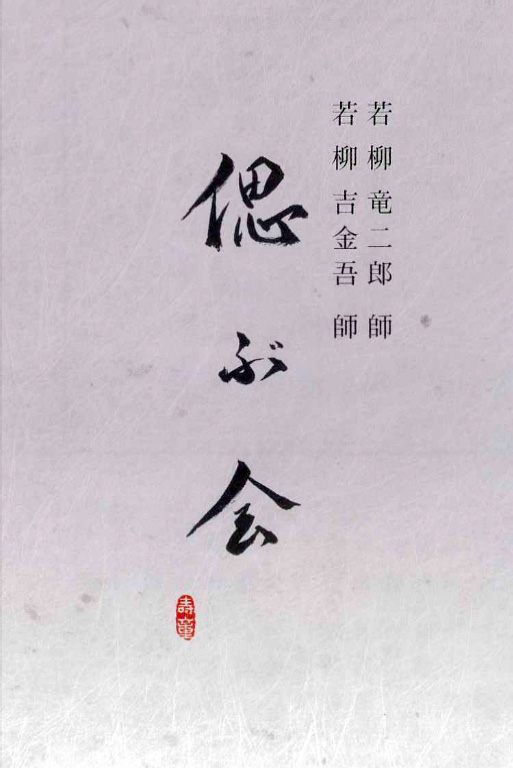 若柳竜二郎師
若柳吉金吾師
偲ぶ会
壽童